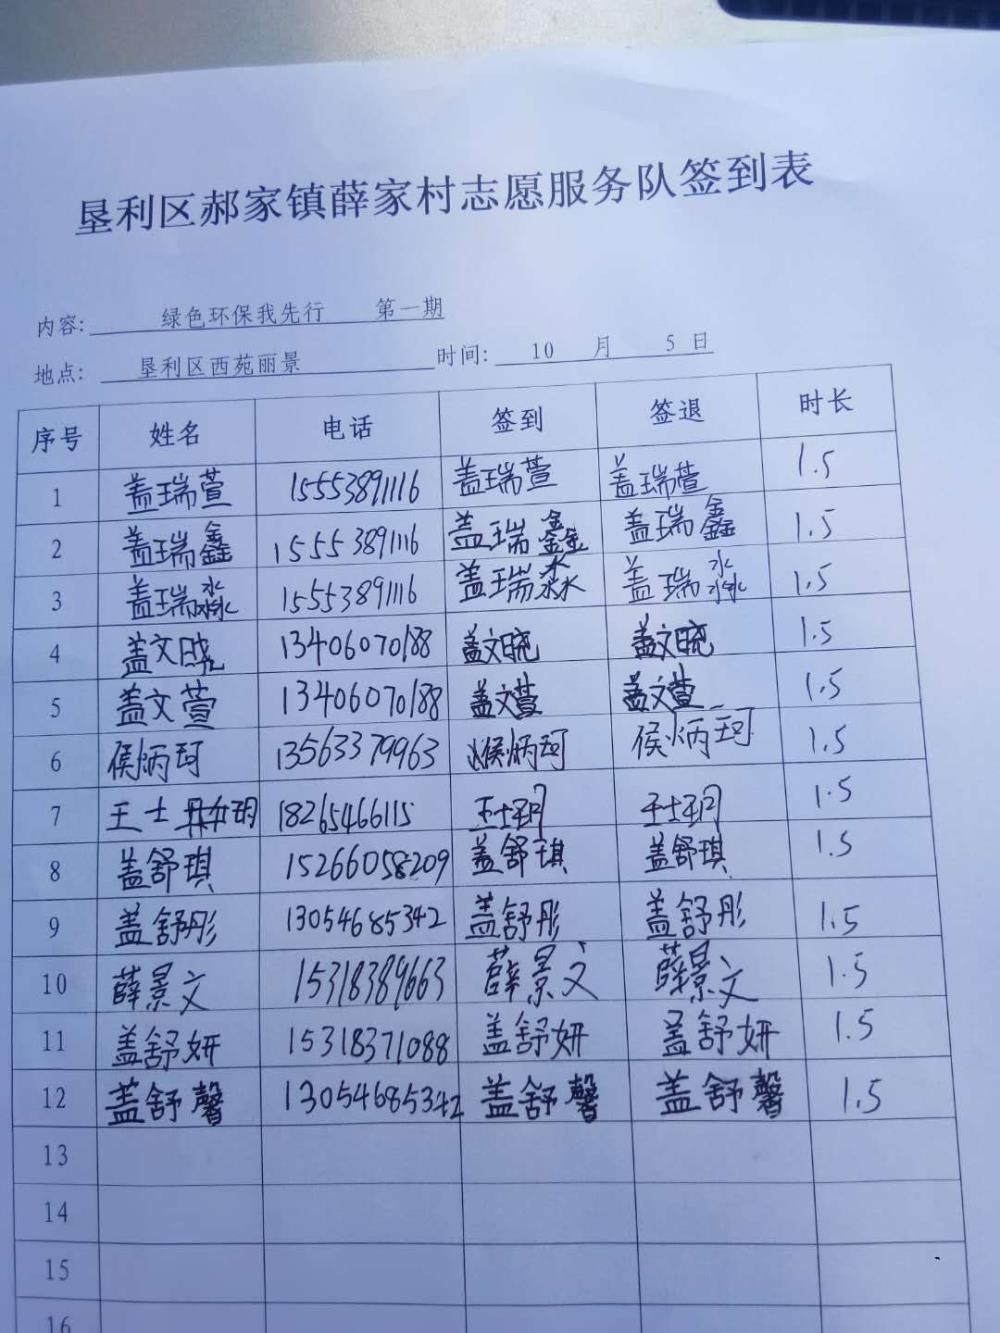 垦利区郝家镇薛家村志愿服务队签到表
内容: 绿色环保我先行 第一期
地点: 垦利区西苑丽景 时间: 10 月 5 日
序号 姓名 电话 签到 签退 时长
1 盖瑞萱 15553891116 盖瑞萱 盖瑞萱 1.5
2 盖瑞鑫 15553891116 盖瑞鑫 盖瑞鑫 1.5
3 盖瑞淼 15553891116 盖瑞淼 盖瑞淼 1.5
4 盖文晓 13406070188 盖文晓 盖文晓 1.5
5 盖文萱 13406070188 盖文萱 盖文萱 1.5
6 侯炳珂 13563379963 侯炳珂 侯炳珂 1.5
7 王士玥 18265466115 王士玥 王士玥 1.5
8 盖舒琪 15266058209 盖舒琪 盖舒琪 1.5
9 盖舒彤 13054685342 盖舒彤 盖舒彤 1.5
10 薛景文 15318389663 薛景文 薛景文 1.5
11 盖舒妍 15318371088 盖舒妍 盖舒妍 1.5
12 盖舒馨 13054685342 盖舒馨 盖舒馨 1.5
13
14
15
16